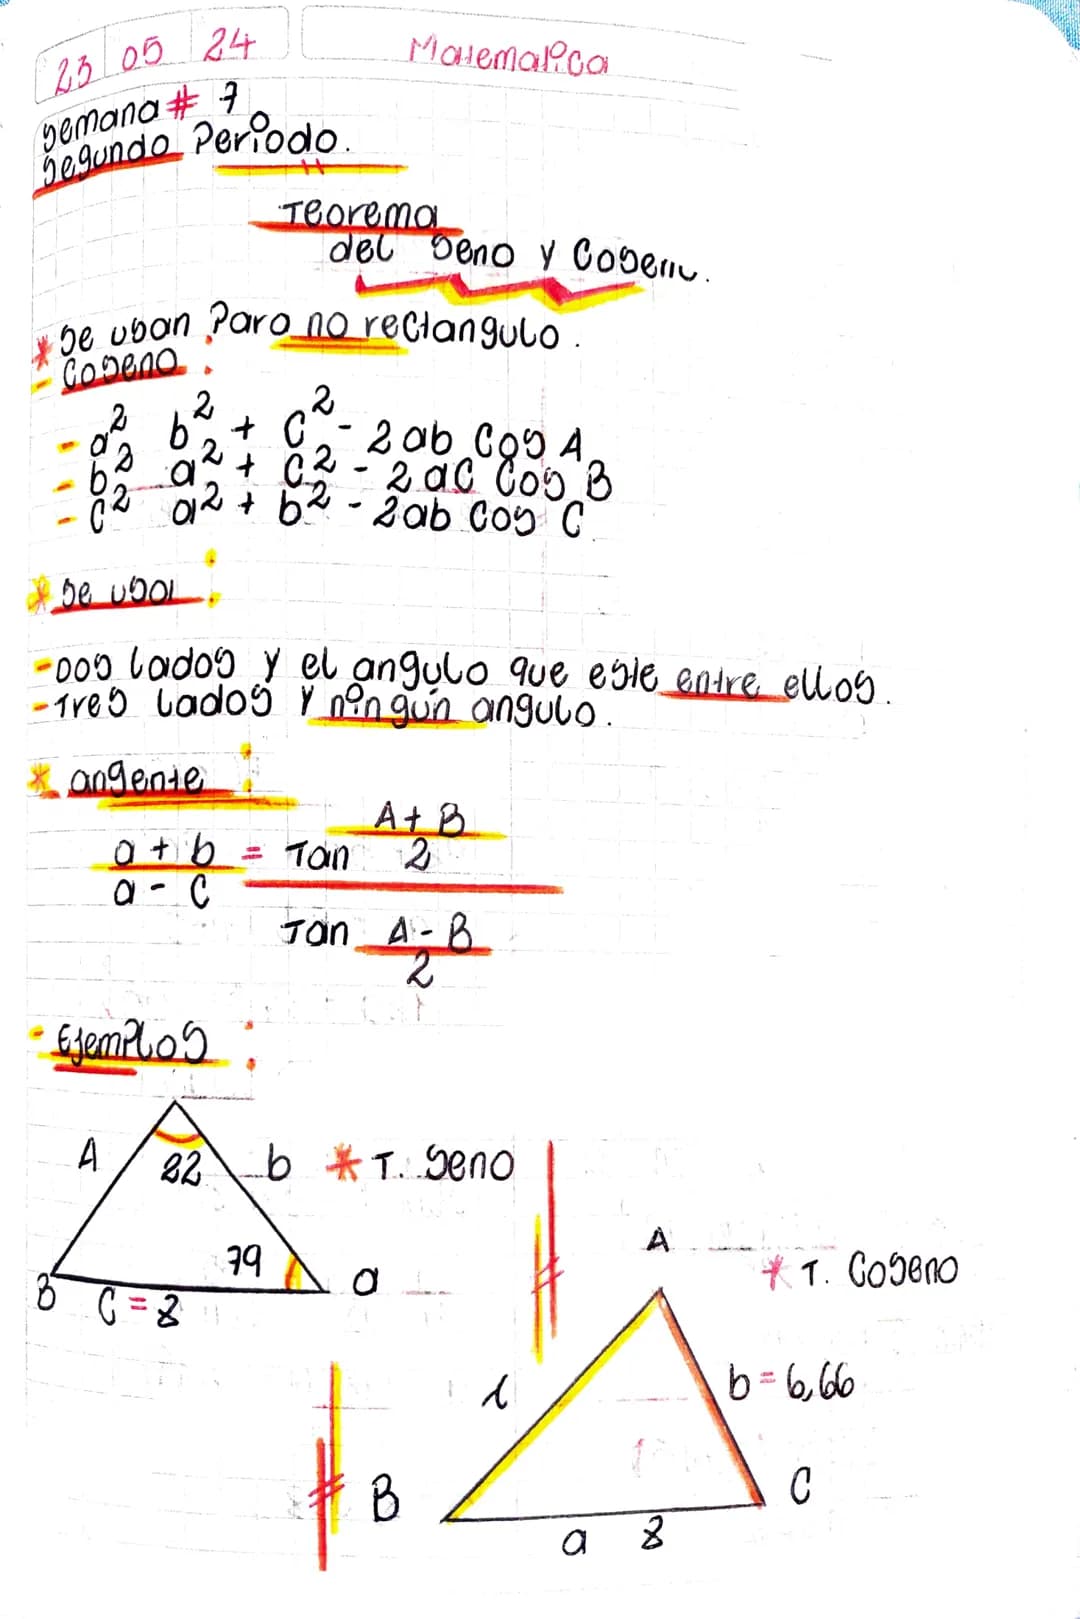 23 05 24
Matematica
semana # 7
Segundo Periodo.
Teorema
del Seno y Coseno.
* Se usan Para no rectangulo.
- Coseno :
- a² b² + c² - 2 ab Cos A
- b² a² + c² - 2 ac Cos B
- c² a² + b² - 2ab cos C
* Se usa :
- Dos lados y el angulo que este entre ellos.
- Tres lados y ningún angulo.
* angente :
A + B
a + b = Tan 2
a - c
Tan A - B
2
- Ejemplos :
A 82 b * T. Seno
79
B C = 8 a
A
* T. Coseno
b = 6,66
B C
a 8